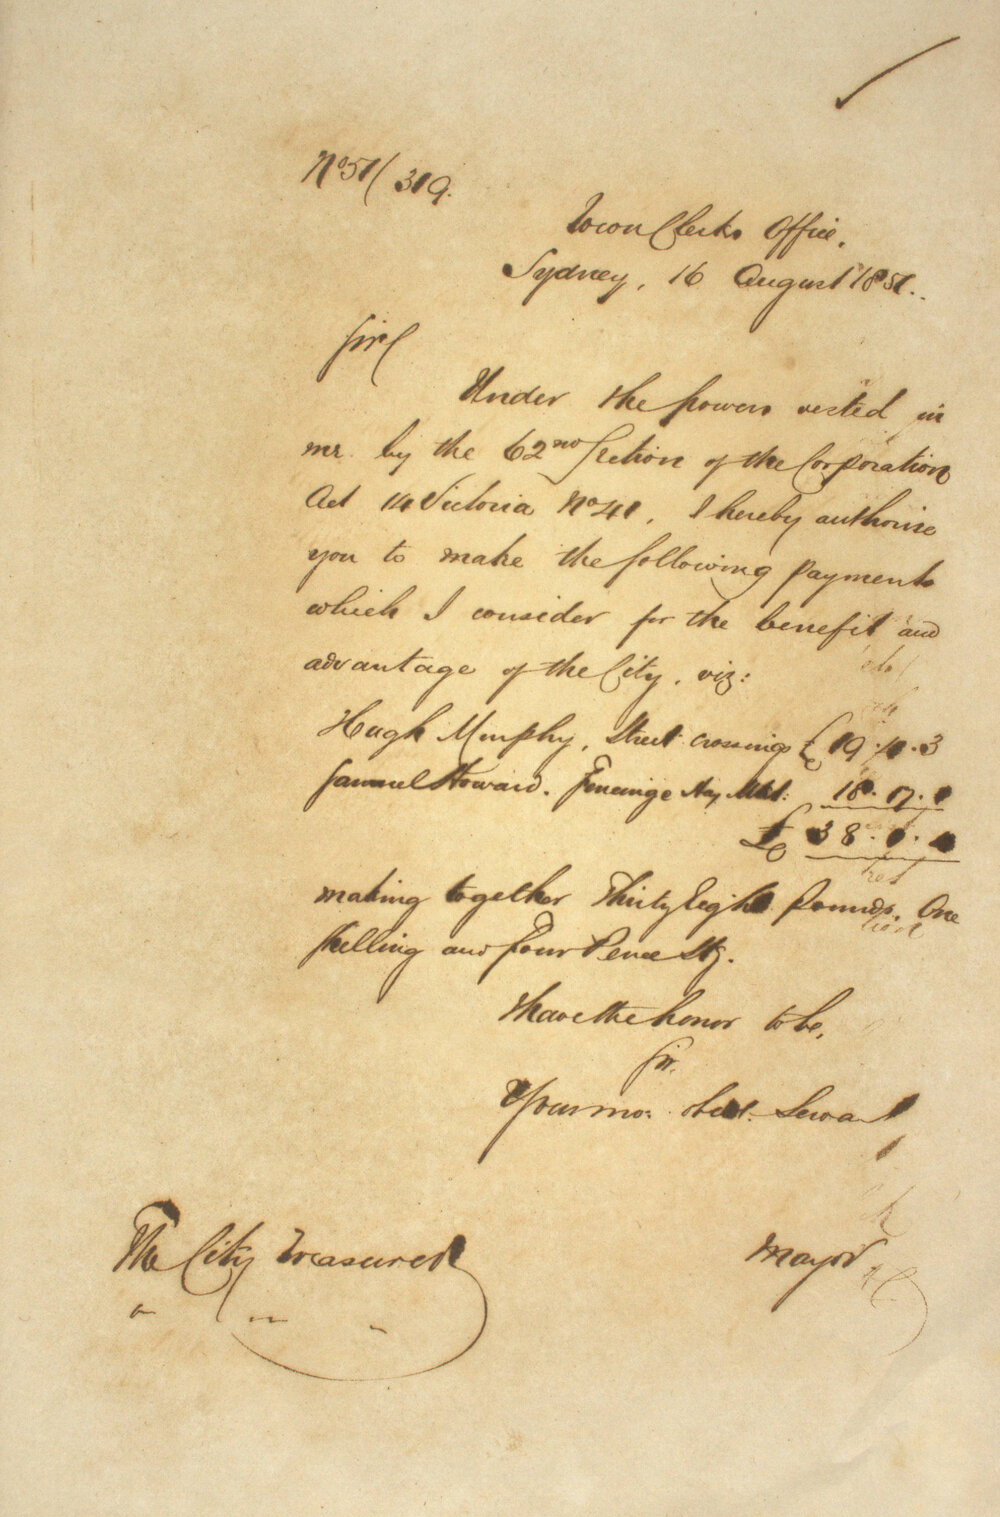 No 51/319.
Town Clerks Office,
Sydney, 16 August 1851.
Sir
Under the powers vested in
me by the 62nd Section of the Corporation
Act 14 Victoria No 41, I hereby authorise
you to make the following payments
which I consider for the benefit and
advantage of the City, viz:
Hugh Murphy, Street crossings £ 19..3
Samuel Howard. Fencing Hay Mkt: 18.17.1
£ 38..
making together Thirty Eight Pounds, One
Shilling and four Pence Stg.
I have the honor to be,
Sir.
Your mo: obedt. Servant
The City Treasurer
Mayor